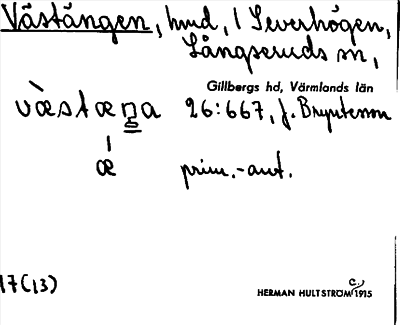 Västängen, hmd, / Severhögen,
Långseruds sn,
Gillbergs hd, Värmlands län
væ̀stæŋa 26:667, f. Bryntesson
æ prim.-ant.
17(13)
HERMAN HULTSTRÖM c. 1915